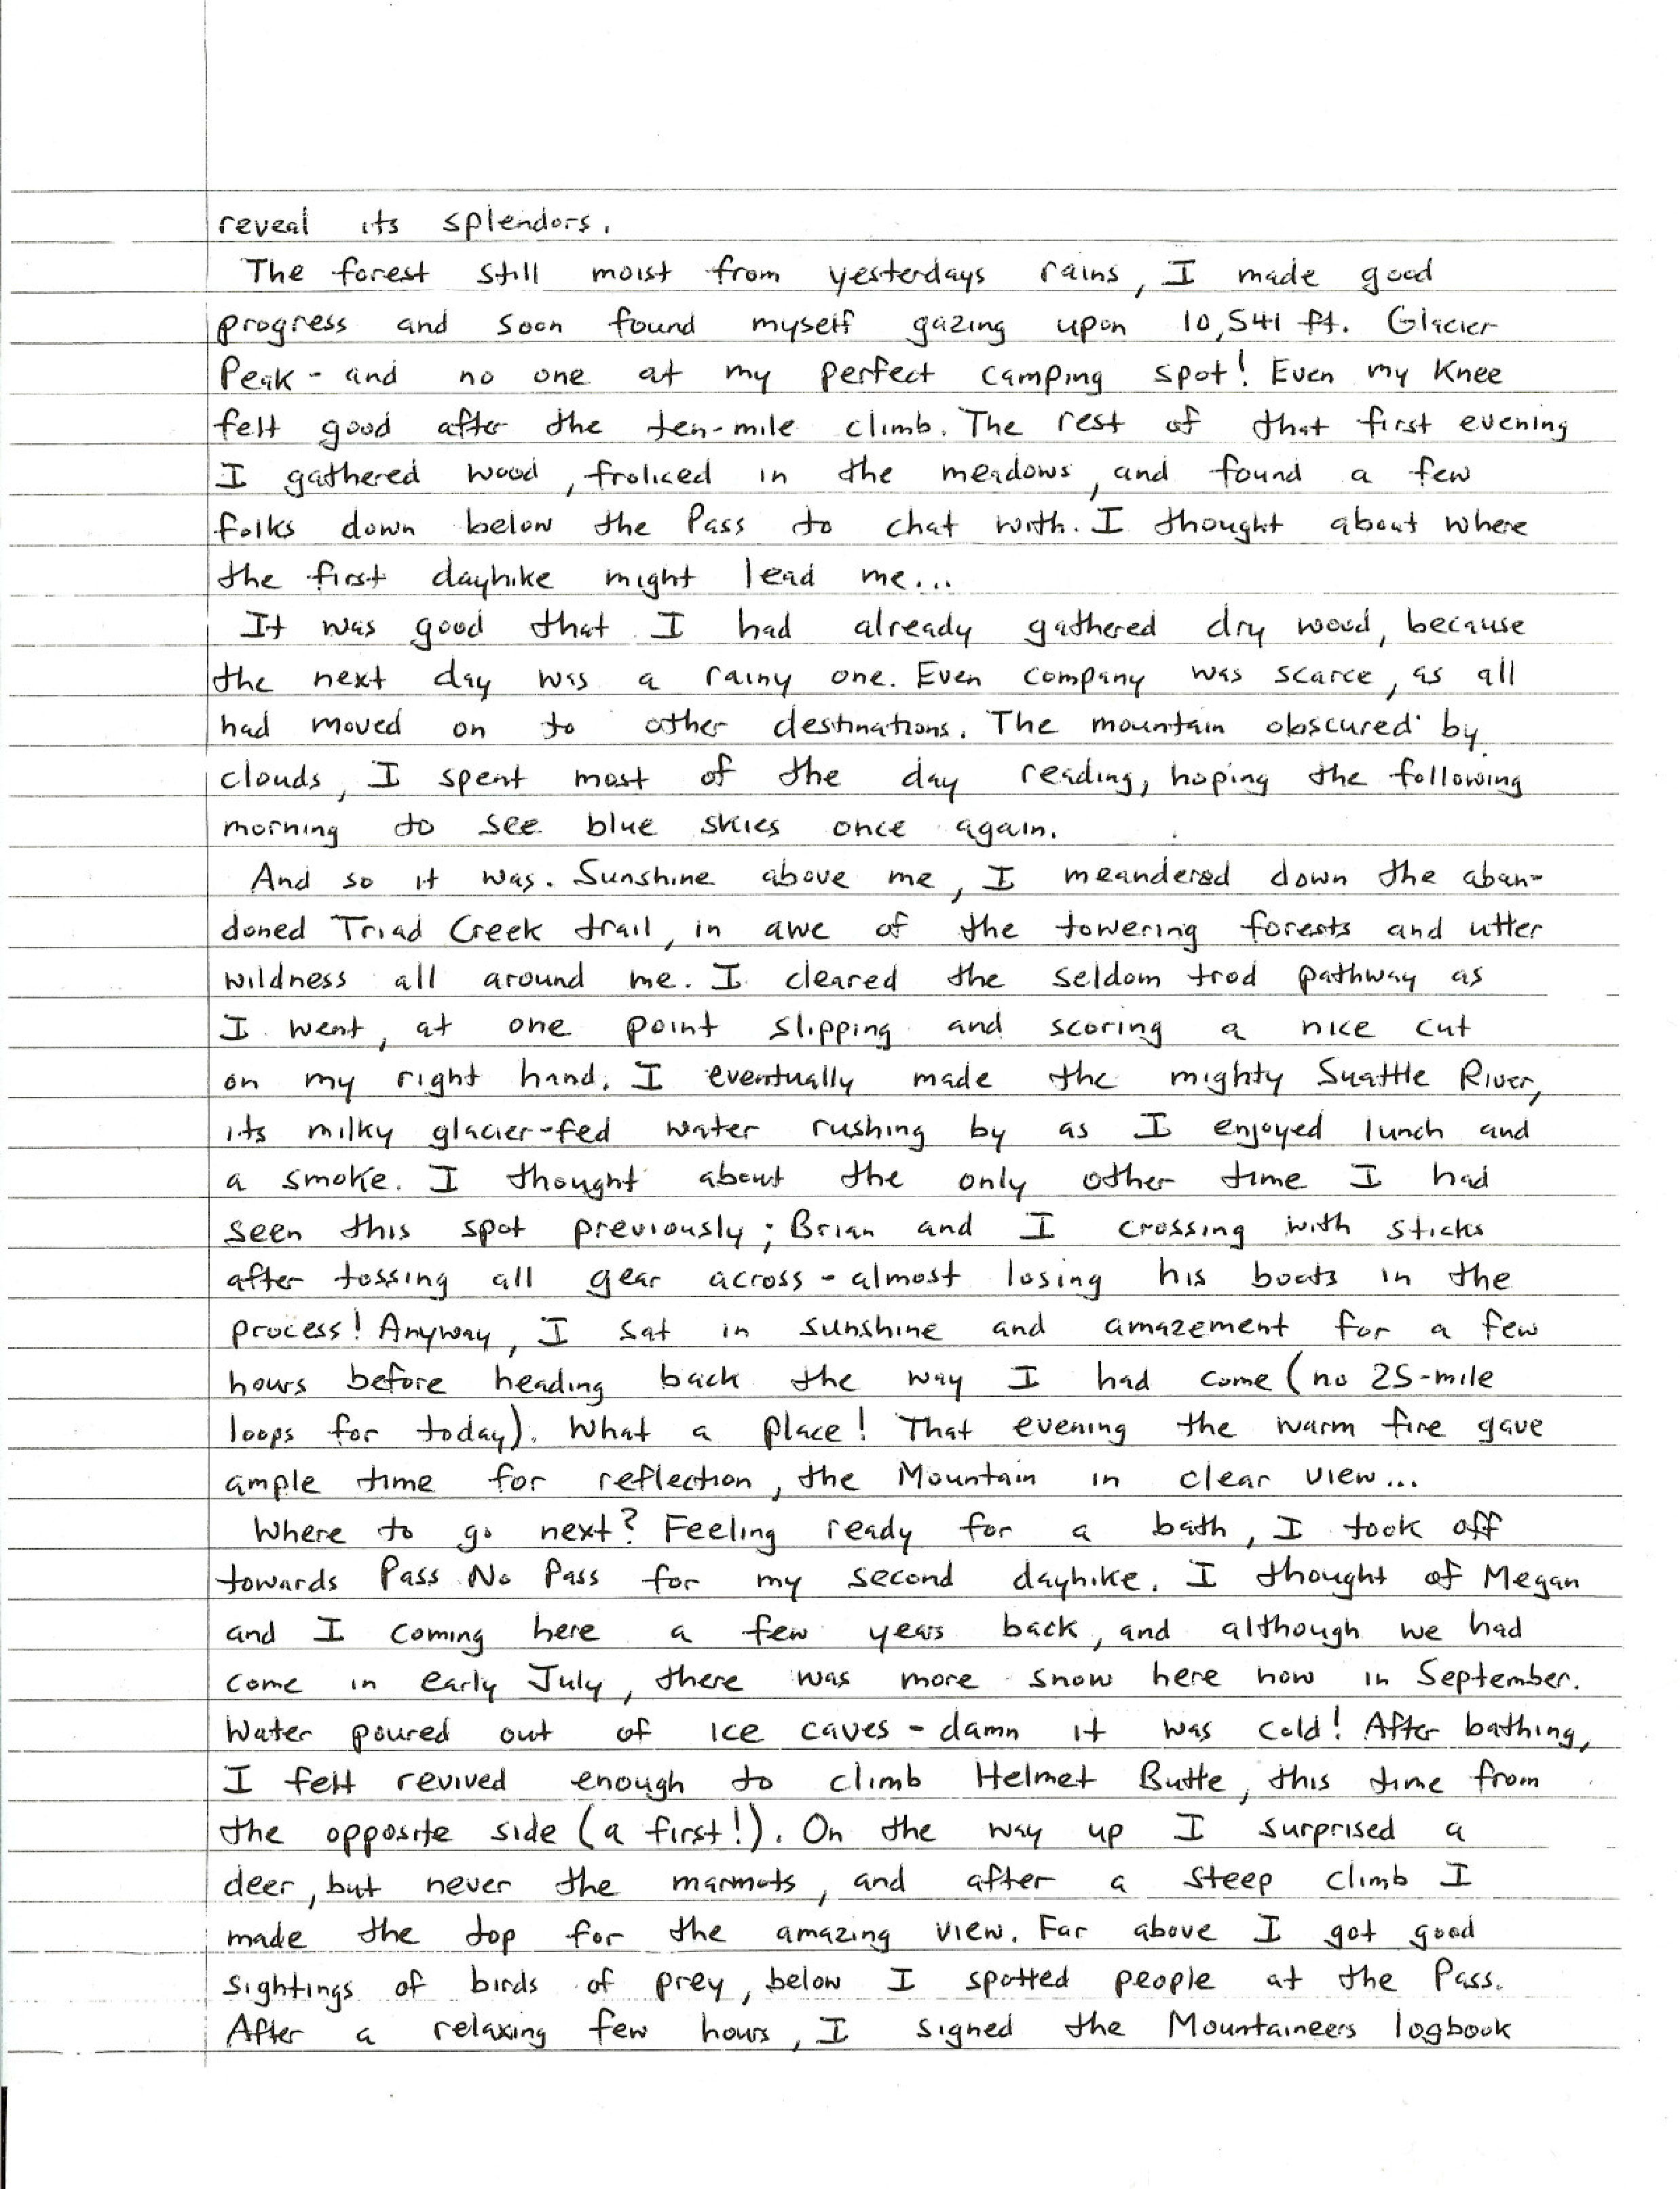 reveal its splendors.
The forest still moist from yesterdays rains, I made good
progress and soon found myself gazing upon 10,541 ft. Glacier
Peak - and no one at my perfect camping spot! Even my knee
felt good after the ten-mile climb. The rest of that first evening
I gathered wood, froliced in the meadows, and found a few
folks down below the Pass to chat with. I thought about where
the first dayhike might lead me...
It was good that I had already gathered dry wood, because
the next day was a rainy one. Even company was scarce, as all
had moved on to other destinations. The mountain obscured by
clouds, I spent most of the day reading, hoping the following
morning to see blue skies once again.
And so it was. Sunshine above me, I meandered down the aban-
doned Triad Creek trail, in awe of the towering forests and utter
wildness all around me. I cleared the seldom trod pathway as
I went, at one point slipping and scoring a nice cut
on my right hand. I eventually made the mighty Suattle River,
its milky glacier-fed water rushing by as I enjoyed lunch and
a smoke. I thought about the only other time I had
seen this spot previously; Brian and I crossing with sticks
after tossing all gear across - almost losing his boots in the
process! Anyway, I sat in sunshine and amazement for a few
hours before heading back the way I had come (no 25-mile
loops for today). What a place! That evening the warm fire gave
ample time for reflection, the Mountain in clear view...
Where to go next? Feeling ready for a bath, I took off
towards Pass No Pass for my second dayhike. I thought of Megan
and I coming here a few years back, and although we had
come in early July, there was more snow here now in September.
Water poured out of ice caves - damn it was cold! After bathing,
I felt revived enough to climb Helmet Butte, this time from
the opposite side (a first!). On the way up I surprised a
deer, but never the marmots, and after a steep climb I
made the top for the amazing view. Far above I got good
sightings of birds of prey, below I spotted people at the Pass.
After a relaxing few hours, I signed the Mountaineers logbook